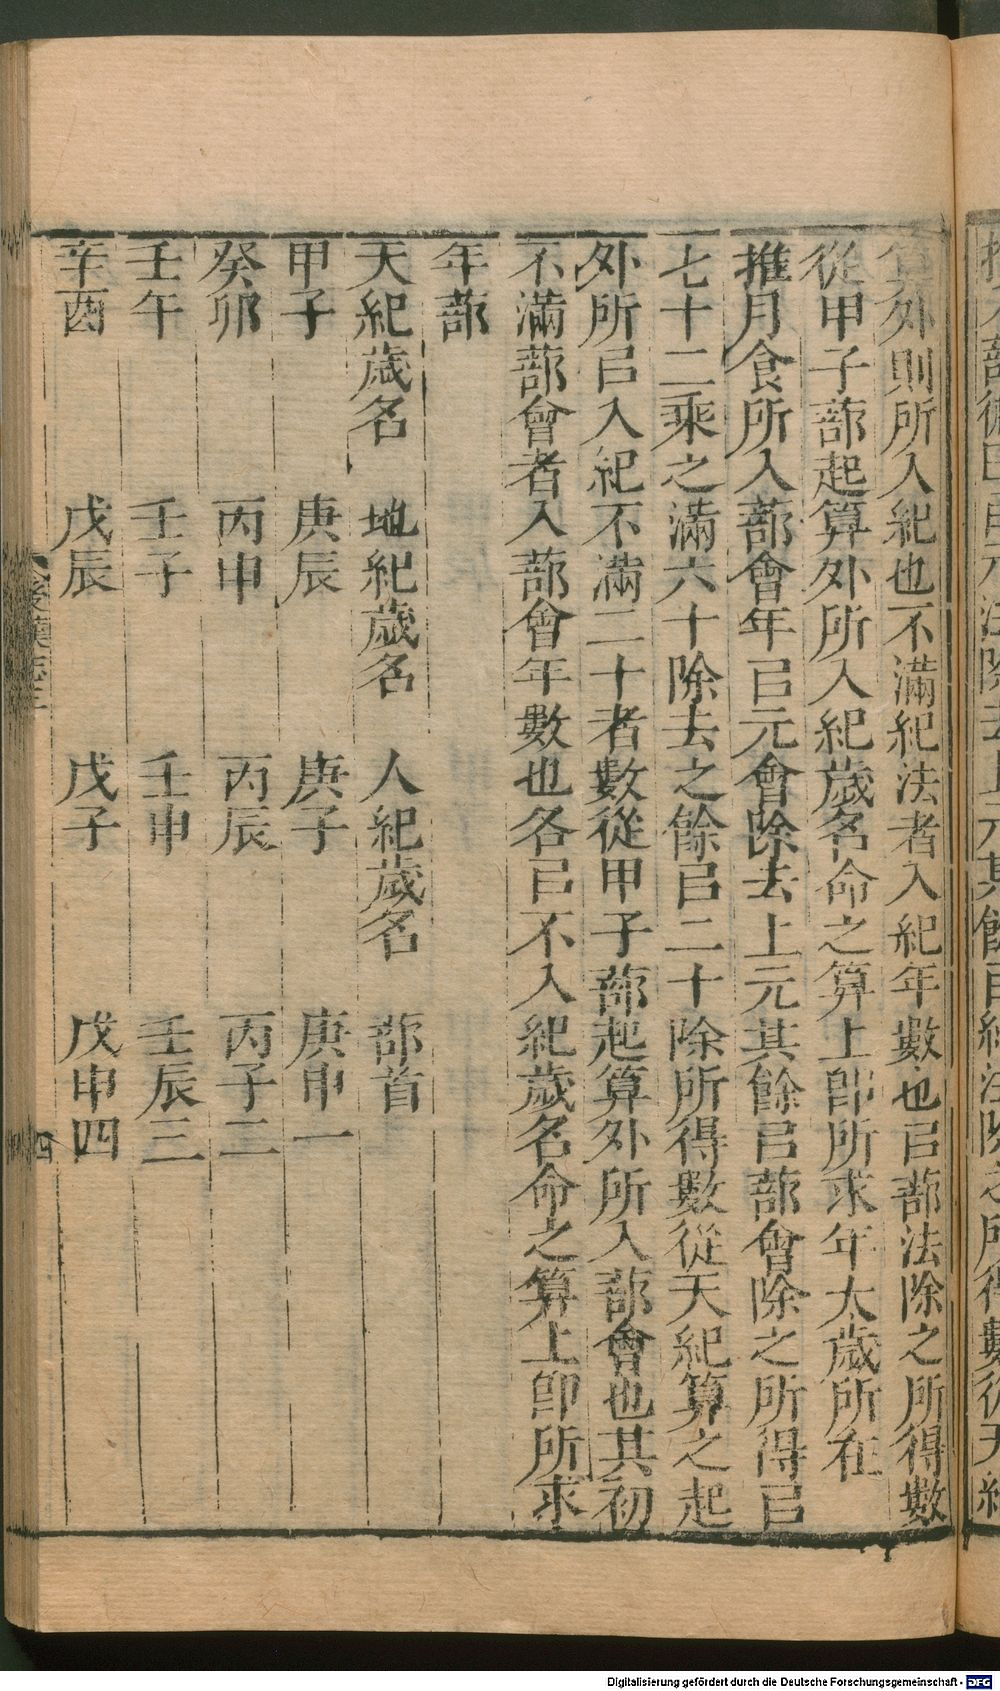 算外則所入紀也不滿紀法者入紀年數也㠯蔀法除之所得數
從甲子蔀起算外所入紀歲名命之算上卽所求年太歲所在
推月食所入蔀會年㠯元會除去上元其餘㠯蔀會除之所得㠯
七十二乘之滿六十除去之餘㠯二十除所得數從天紀算之起
外所㠯入紀不滿二十者數從甲子蔀起算外所入蔀會也其初
不滿蔀會者入蔀會年數也各㠯不入紀歲名命之算上卽所求
年蔀
天紀歲名 地紀歲名 人紀歲名 蔀首
甲子 庚辰 庚子 庚申一
癸卯 丙申 丙辰 丙子二
壬午 壬子 壬申 壬辰三
辛酉 戊辰 戊子 戊申四
後漢志三
四
Digitalisierung gefördert durch die Deutsche Forschungsgemeinschaft - DFG